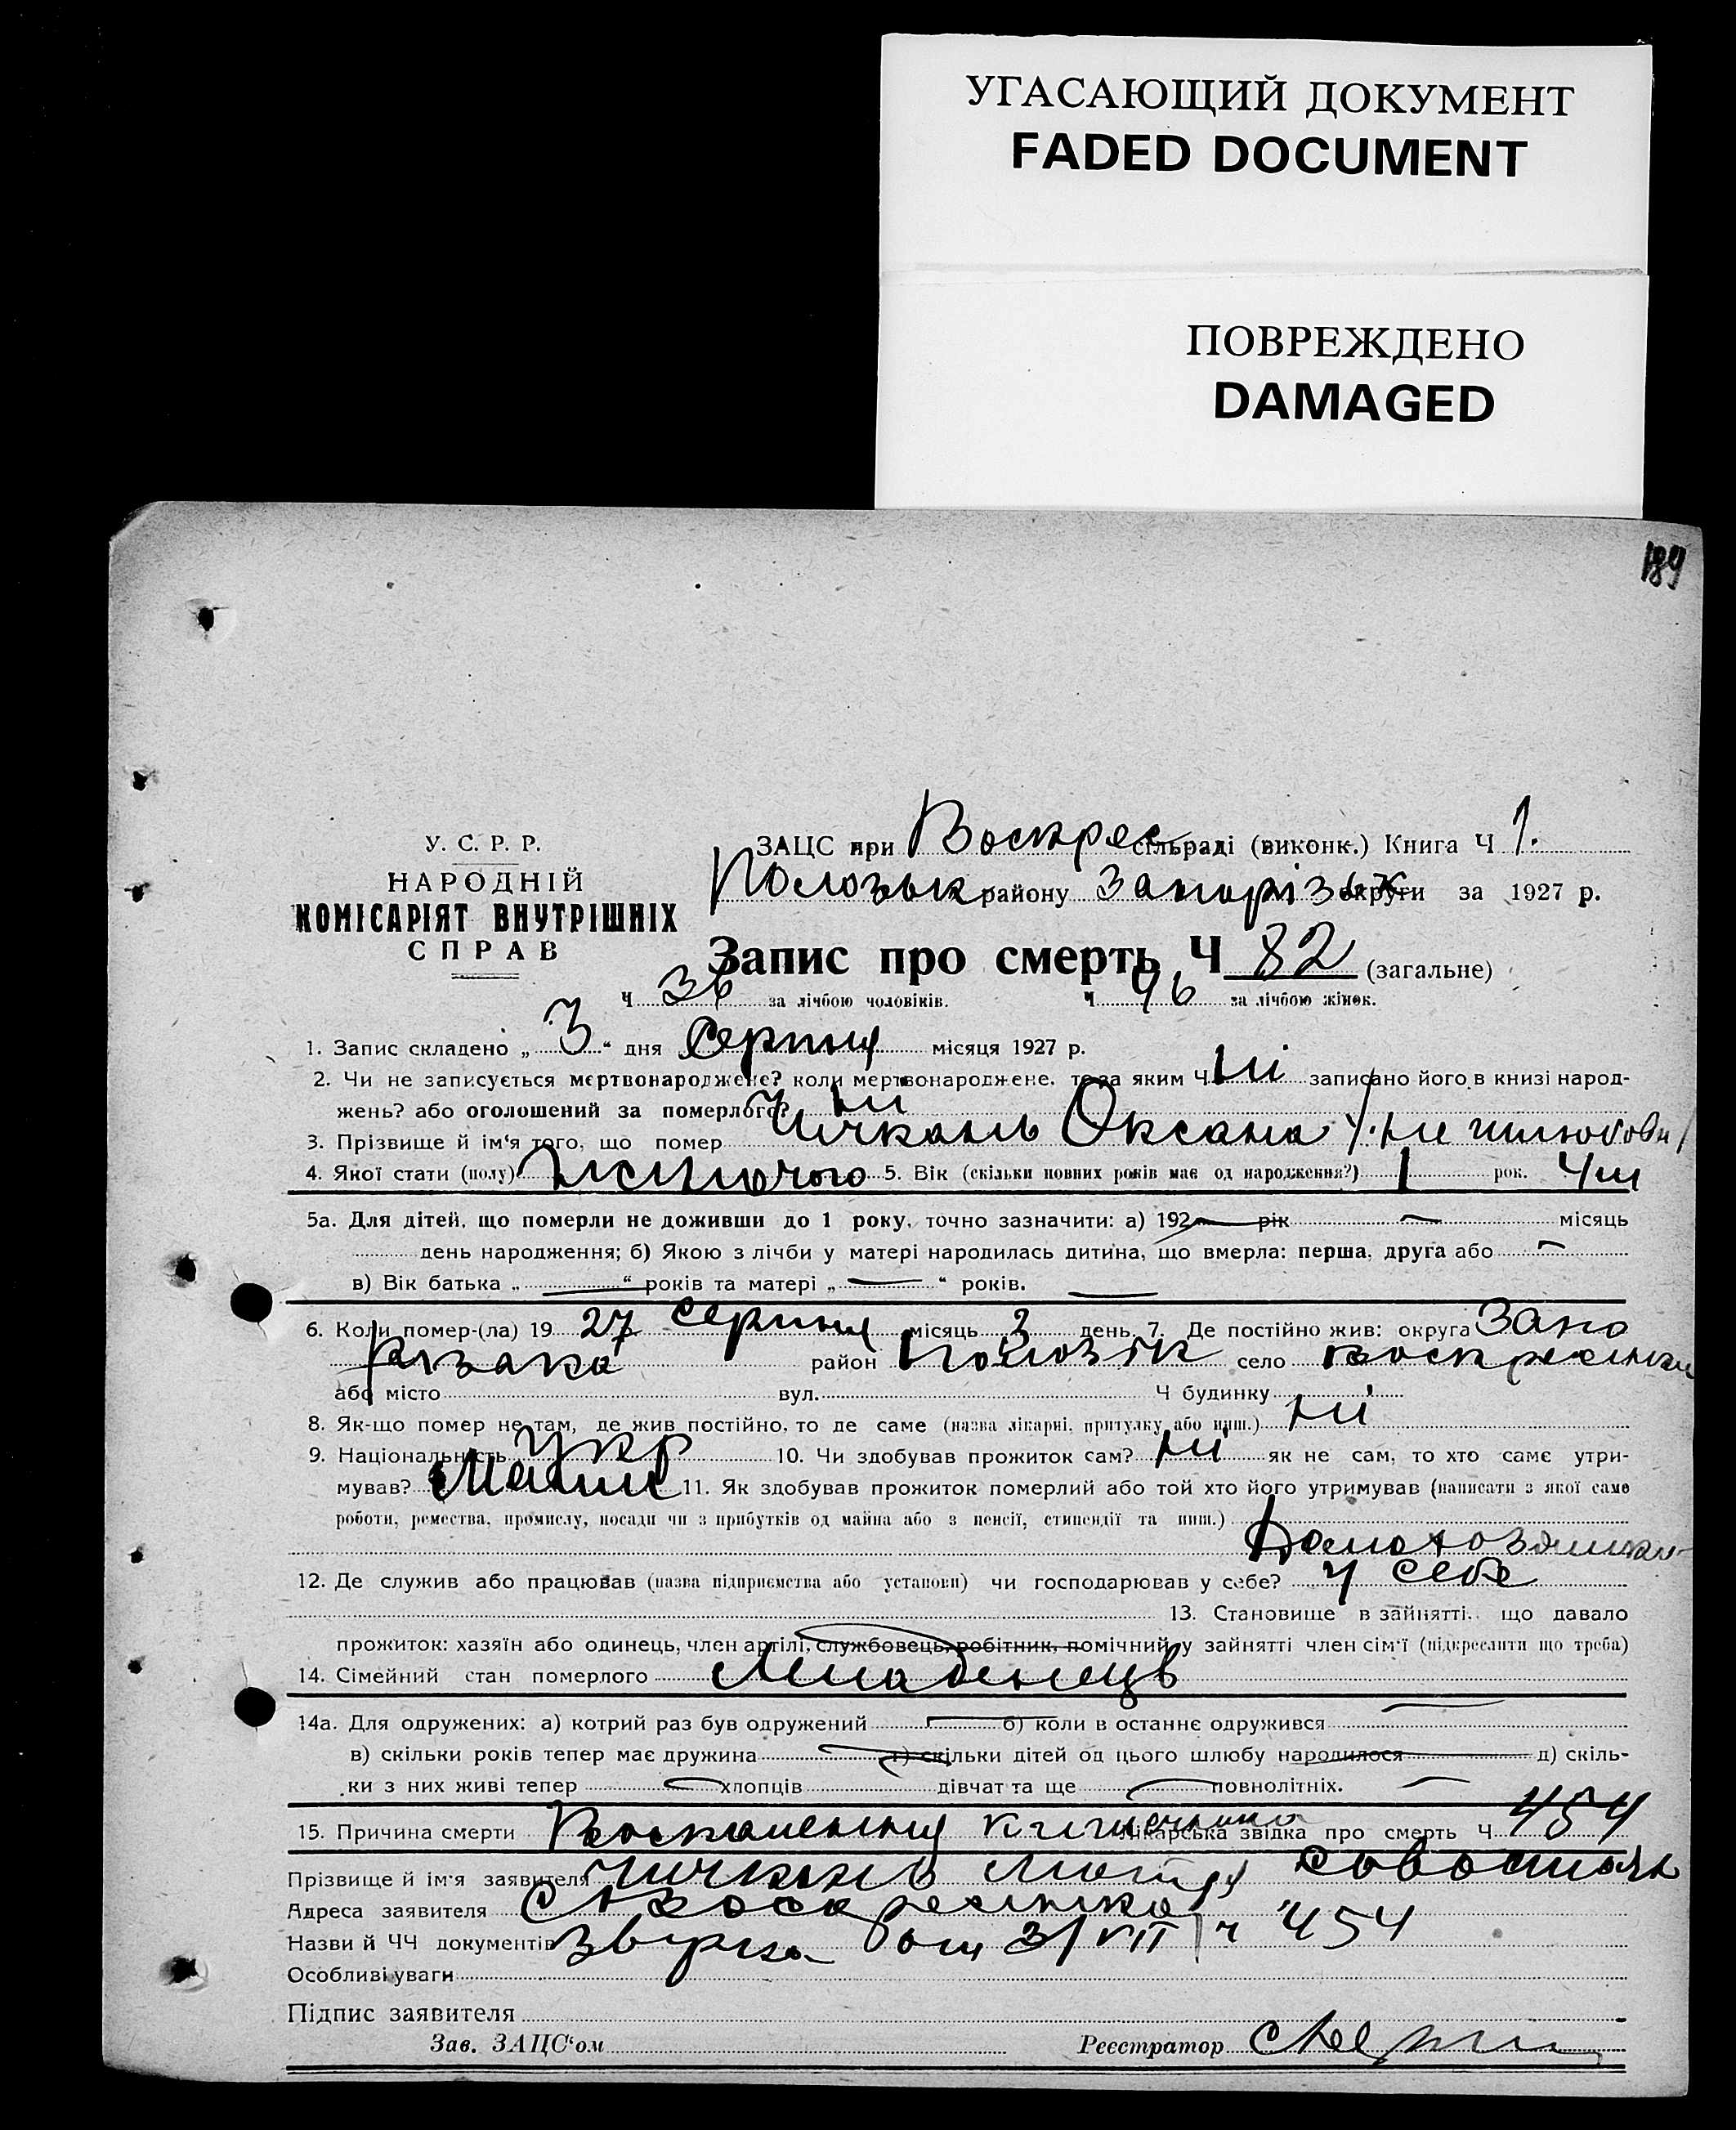 УГАСАЮЩИЙ ДОКУМЕНТ
FADED DOCUMENT
ПОВРЕЖДЕНО
DAMAGED
189
У. С. Р. Р.
НАРОДНІЙ
КОМІСАРІЯТ ВНУТРІШНІХ
СПРАВ
ЗАЦС при Воскрес сільраді (виконк.) Книга Ч 1.
Пологзьк району Запорізьк округи за 1927 р.
Запис про смерть Ч 82 (загальне)
Ч 36 за лічбою чоловіків. Ч 46 за лічбою жінок.
1. Запис складено „ 3 “ дня Серпня місяця 1927 р.
2. Чи не записується мертвонароджене? коли мертвонароджене, то за яким Ч ні записано його в книзі народ-
жень? або оголошений за померлого? ні
3. Прізвище й ім‘я того, що помер Чичкань Оксана
4. Якої стати (полу) жіночого 5. Вік (скільки повних років має од народження?) 1 рок. 4 м
5а. Для дітей, що померли не доживши до 1 року, точно зазначити: а) 192 — рік — місяць
день народження; б) Якою з лічби у матері народилась дитина, що вмерла: перша, друга або —
в) Вік батька „ — “ років та матері „ — “ років. —
6. Коли помер-(ла) 19 27 серпня місяць 2 день. 7. Де постійно жив: округа Запо
різька район Пологзьк село Воскресінка
або місто вул. Ч будинку
8. Як-що помер не там, де жив постійно, то де саме (назва лікарні, притулку або инш.) ні
9. Національність Укр 10. Чи здобував прожиток сам? ні як не сам, то хто саме утри-
мував? Мати 11. Як здобував прожиток померлий або той хто його утримував (написати з якої саме
роботи, ремества, промислу, посади чи з прибутків од майна або з пенсії, стипендії та инш.)
Домохозяйка
12. Де служив або працював (назва підприємства або установи) чи господарював у себе? У себе
13. Становище в зайнятті, що давало
прожиток: хазяїн або одинець, член артілі, службовець, робітник, помічний у зайнятті член сім‘ї (підкреслити що треба)
14. Сімейний стан померлого Младенець
14а. Для одружених: а) котрий раз був одружений — б) коли в останнє одружився —
в) скільки років тепер має дружина — г) скільки дітей од цього шлюбу народилося — д) скіль-
ки з них живі тепер — хлопців дівчат та ще — повнолітніх. —
15. Причина смерти Воспаления кишечника Лікарська звідка про смерть Ч 454
Прізвище й ім‘я заявителя Чичкань
Адреса заявителя С Воскресінка
Назви й ЧЧ документів 3/VII ч 454
Особливі уваги
Підпис заявителя
Зав. ЗАЦС‘ом Реєстратор